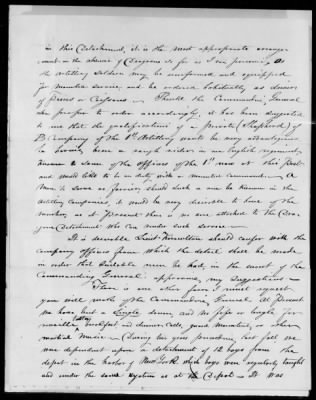 in this Detachment, it is the most appropriate arrange-
ment in the absence of Dragoons as far as I can perceive, as
the Artillery Soldiers may be uniformed and equipped
for mounted service, and be ordered habitually as drivers
of Pieces or Caissons. Should the Commanding General
see proper to order accordingly, it has been suggested
to me that the qualifications of a Private (Shepherd) of
B. Company of the 1st Artillery would be very advantageous
been a rough rider in an English regiment,
known to some of the Officers of the 1st now at this Post
and would like to be on duty with a mounted command. A
Man to serve as farrier should such a one be known in the
Artillery companies, it would be very desirable to have of the
number, as at Present there is no one attached to the Dra-
goon Detachment who can render such service.
It is desirable Lieut. Hamilton should confer with the
company officers from which the detail shall be made
in order that suitable men be had, in the event of the
Commanding General approving my suggestions.
There is one other favor I must request
you will make of the Commanding General. At Present
we have but a single drum, and no fife or bugle for
reveille, tattoo, breakfast and dinner calls, guard mounting, or other
martial music. During the year preceding last fall we
were dependent upon a detachment of 12 boys from the
depot in the harbor of New York which boys were regularly taught
and under the same system as at the Depot. It was